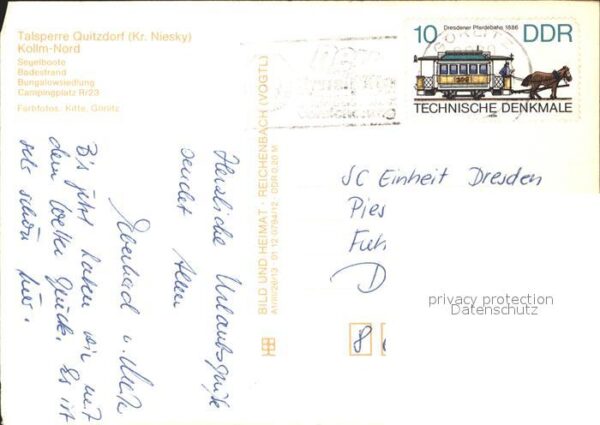 Talsperre Quitzdorf (Kr. Niesky)
Kollm-Nord
Segelboote
Badestrand
Bungalowsiedlung
Campingplatz R/23
Farbfotos: Kitte, Görlitz
BILD UND HEIMAT · REICHENBACH (VOGTL)
A1/III/26/13 01 12 0794/12 DDR 0,20 M
Dresdener Pferdebahn 1886
10 DDR
TECHNISCHE DENKMALE
Herzliche Urlaubsgrüße
sendet Allen
Eberhard u.
B's jetzt haben wir mit
dem Wetter Glück. Es ist
sehr schön hier.
SC Einheit Dresden
Pies
D
8
privacy protection
Datenschutz